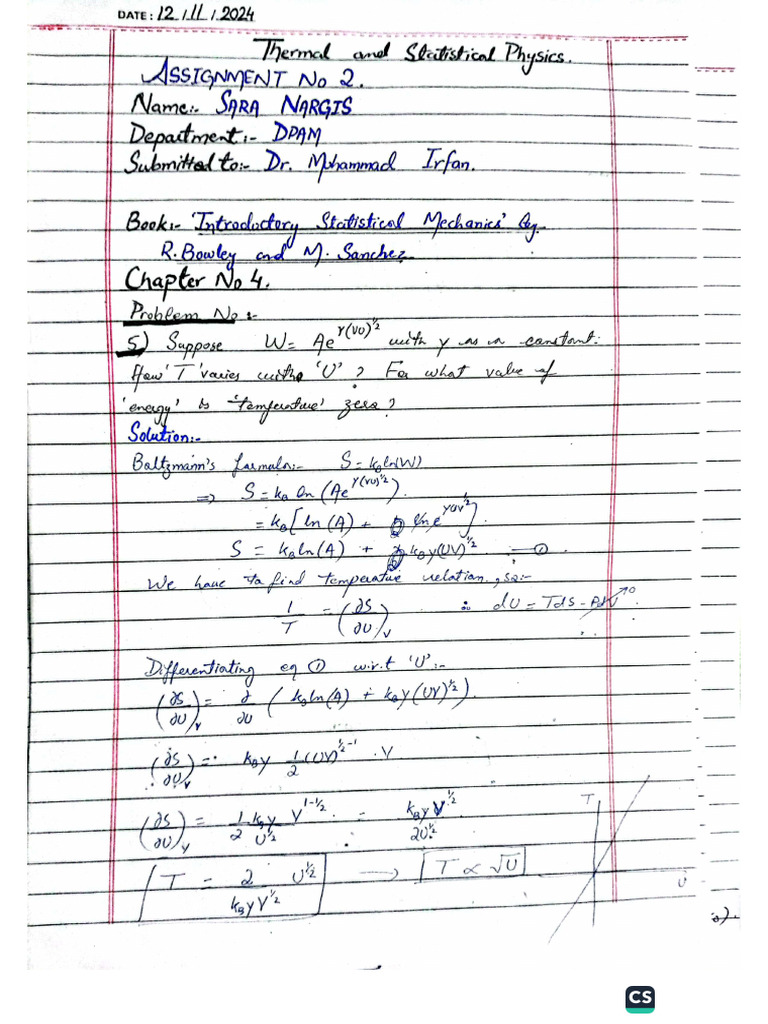 DATE: 12/11/2024
Thermal and Statistical Physics.
ASSIGNMENT No 2.
Name:- SARA NARGIS
Department:- DPAM
Submitted to:- Dr. Mohammad Irfan.
Book:- 'Introductory Statistical Mechanics' by
R. Bowley and M. Sanchez
Chapter No 4.
Problem No:-
5) Suppose W = Ae^γ(VU)^½ with γ as a constant.
How 'T' varies with 'U'? For what value of
'energy' is 'temperature' zero?
Solution:-
Boltzmann's formula:- S = k_B ln(W)
⇒ S = k_B ln (Ae^γ(VU)^½).
= k_B [ln(A) + ln e^γUV^½].
S = k_B ln(A) + k_B γ(UV)^½ —①
We have to find temperature relation, so:-
1/T = (∂S/∂U)_V ∴ dU = TdS - PdV→0
Differentiating eq ① w.r.t 'U':-
(∂S/∂U)_V = ∂/∂U (k_B ln(A) + k_B γ(UV)^½).
(∂S/∂U)_V = k_B γ 1/2 (UV)^½-1 · V
(∂S/∂U)_V = 1/2 k_B γ/U^½ V^1-½ = k_B γ V^½/2U^½
T = 2/k_B γ V^½ U^½ → T ∝ √U
T
U
CS